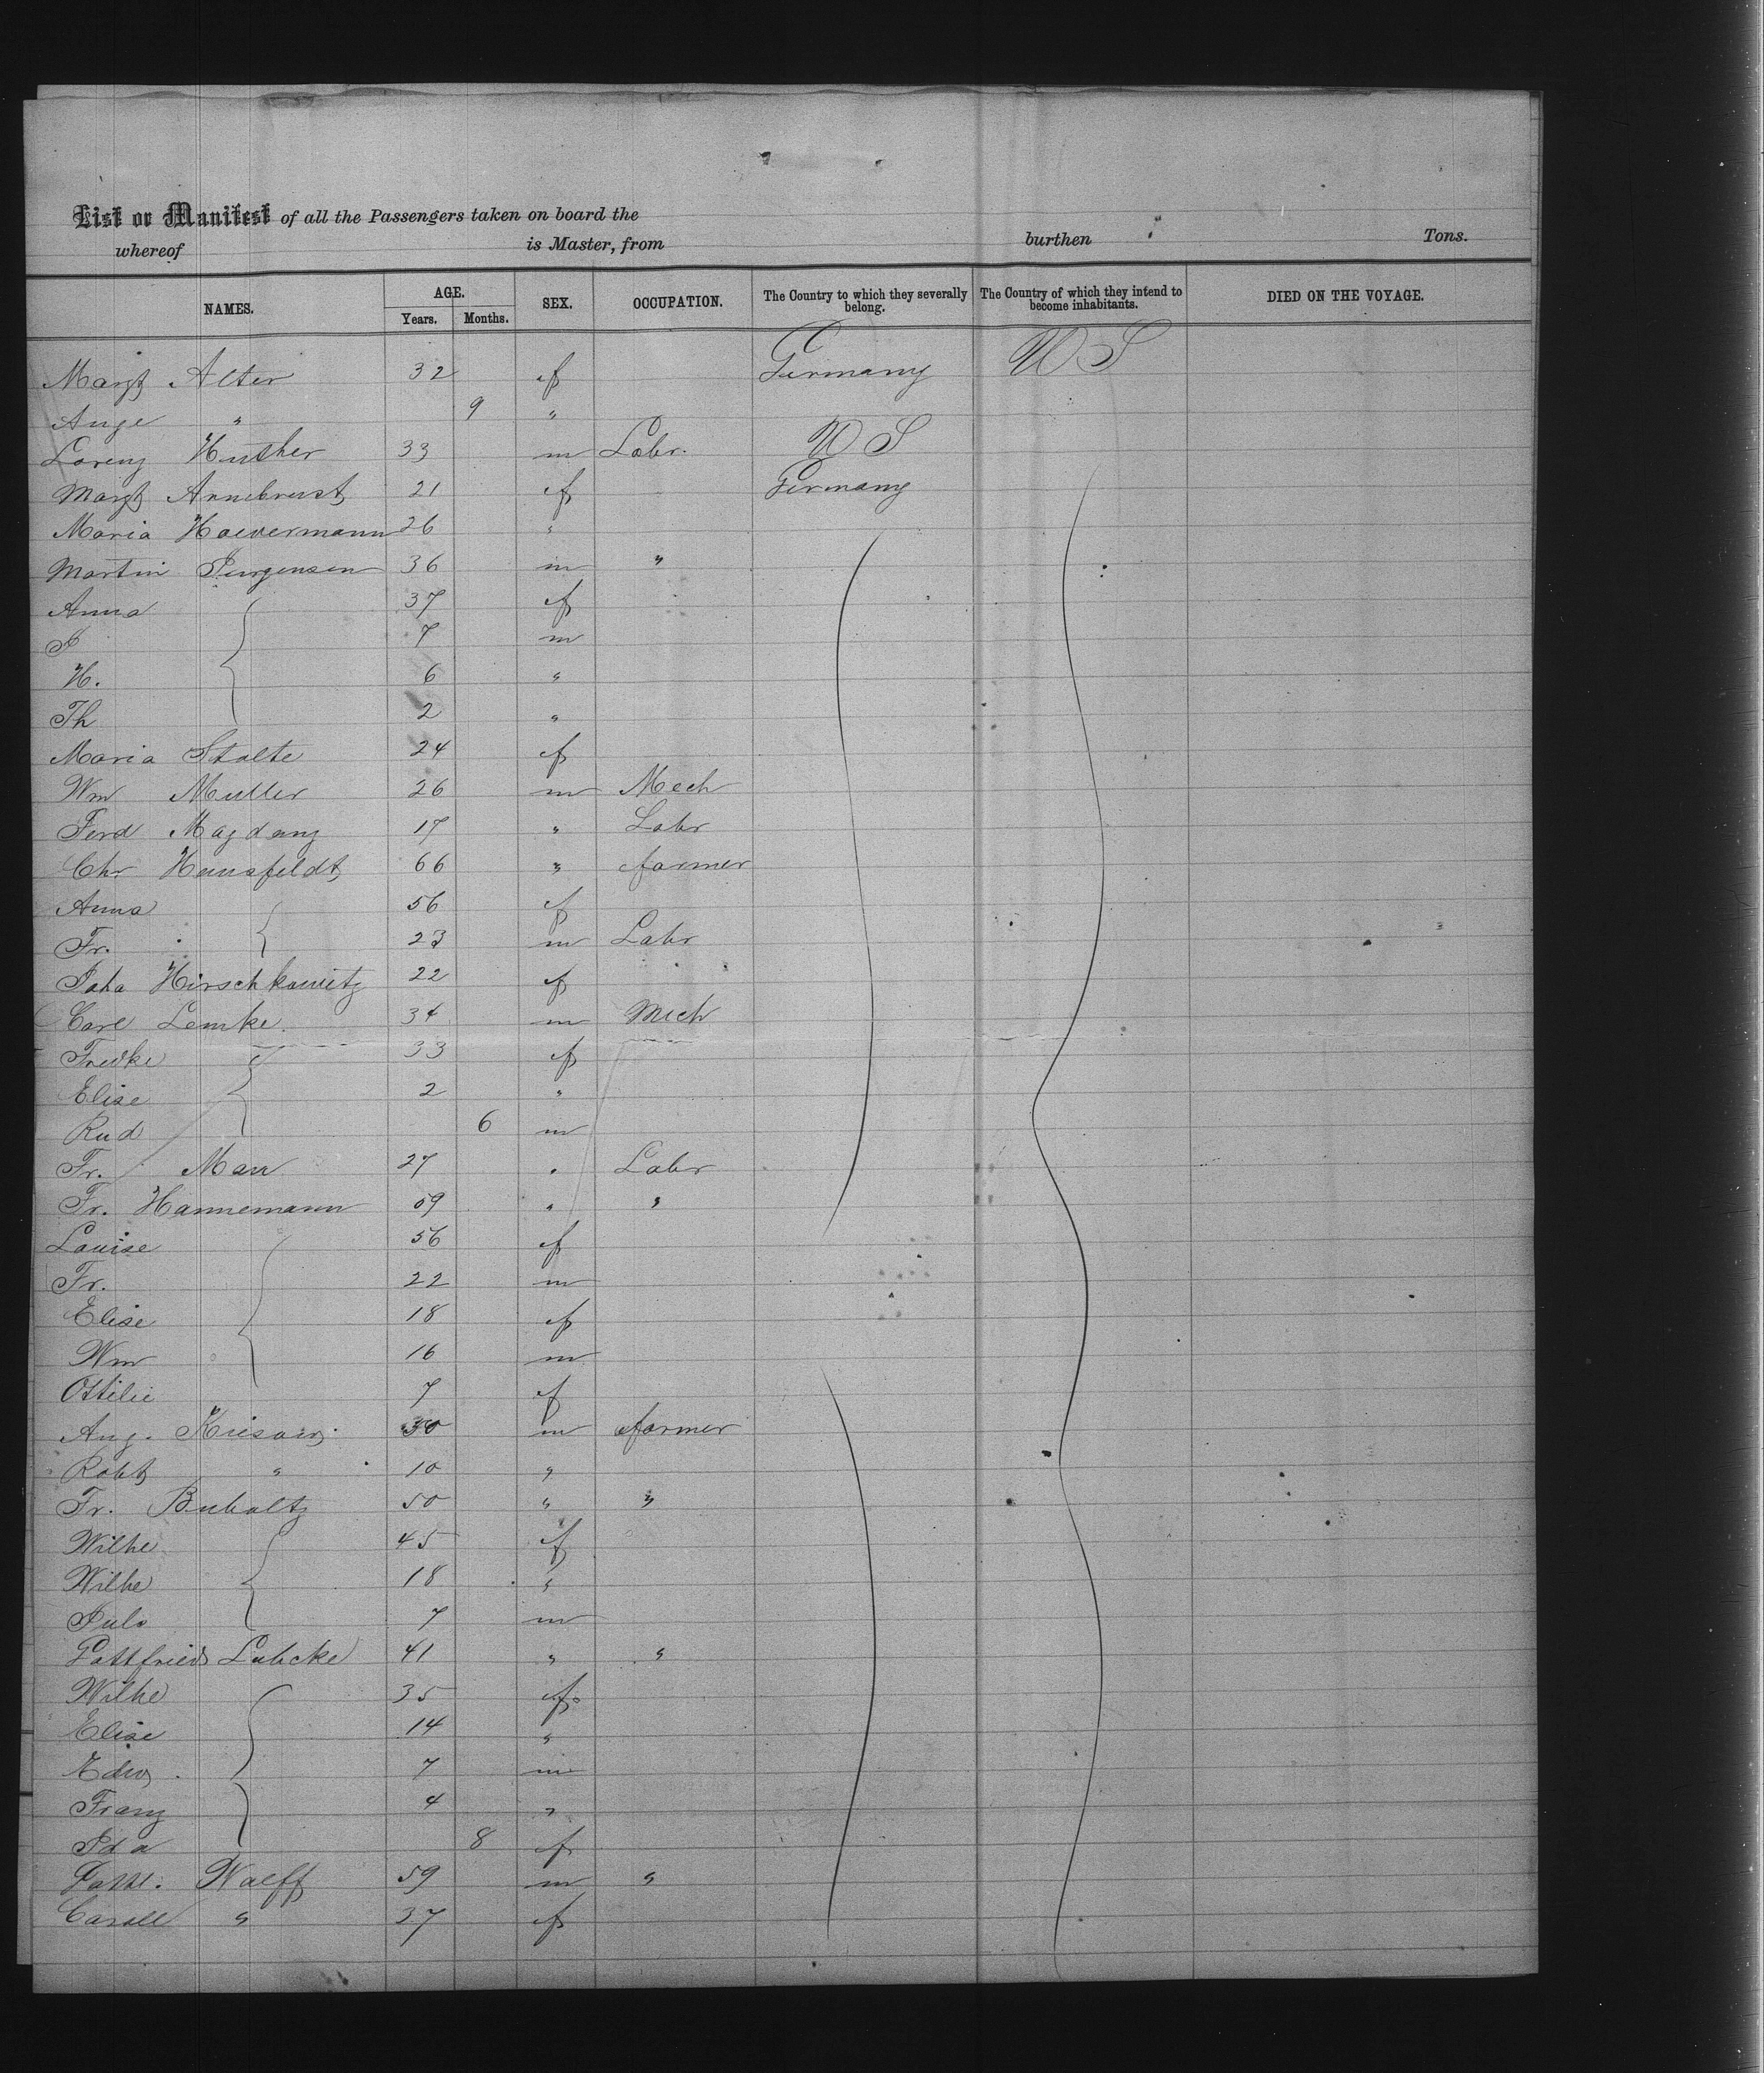 List or Manifest of all the Passengers taken on board the
whereof is Master, from burthen Tons.
NAMES. AGE. Years. Months. SEX. OCCUPATION. The Country to which they severally belong. The Country of which they intend to become inhabitants. DIED ON THE VOYAGE.
Margt Alter 32 f Germany U S
Auge " 9 "
Lorenz Huther 33 m Labr. U S
Margt Armbrust 21 f Germany
Maria Haevermann 26 "
Martin Jurgensen 36 m "
Anna 37 f
J 7 m
H. 6 "
Th 2 "
Maria Stolte 24 f
Wm Muller 26 m Mech
Ferd Magdanz 17 " Labr
Chr Hansfeldt 66 " farmer
Anna 56 f
Fr. 23 m Labr
Joha Hirschkowitz 22 f
Carl Lemke. 34 m Mech
Fredke 33 f
Elise 2 "
Rud 6 m
Fr. 27 " Labr
Fr. Hannemann 59 " "
Louise 56 f
Fr. 22 m
Elise 18 f
Wm 16 m
Ottilie 7 f
Aug. 30 m farmer
Robt " 10 "
Fr. Buholtz 50 " "
Wilhe 45 f
Wilhe 18 "
Juls 7 m
Gottfried Lubcke 41 " "
Wilhe 35 f
Elise 14 "
Edwd 7 m
Franz 4 "
Ida 8 f
Gottl. Wolff 59 m "
Caroll " 37 f